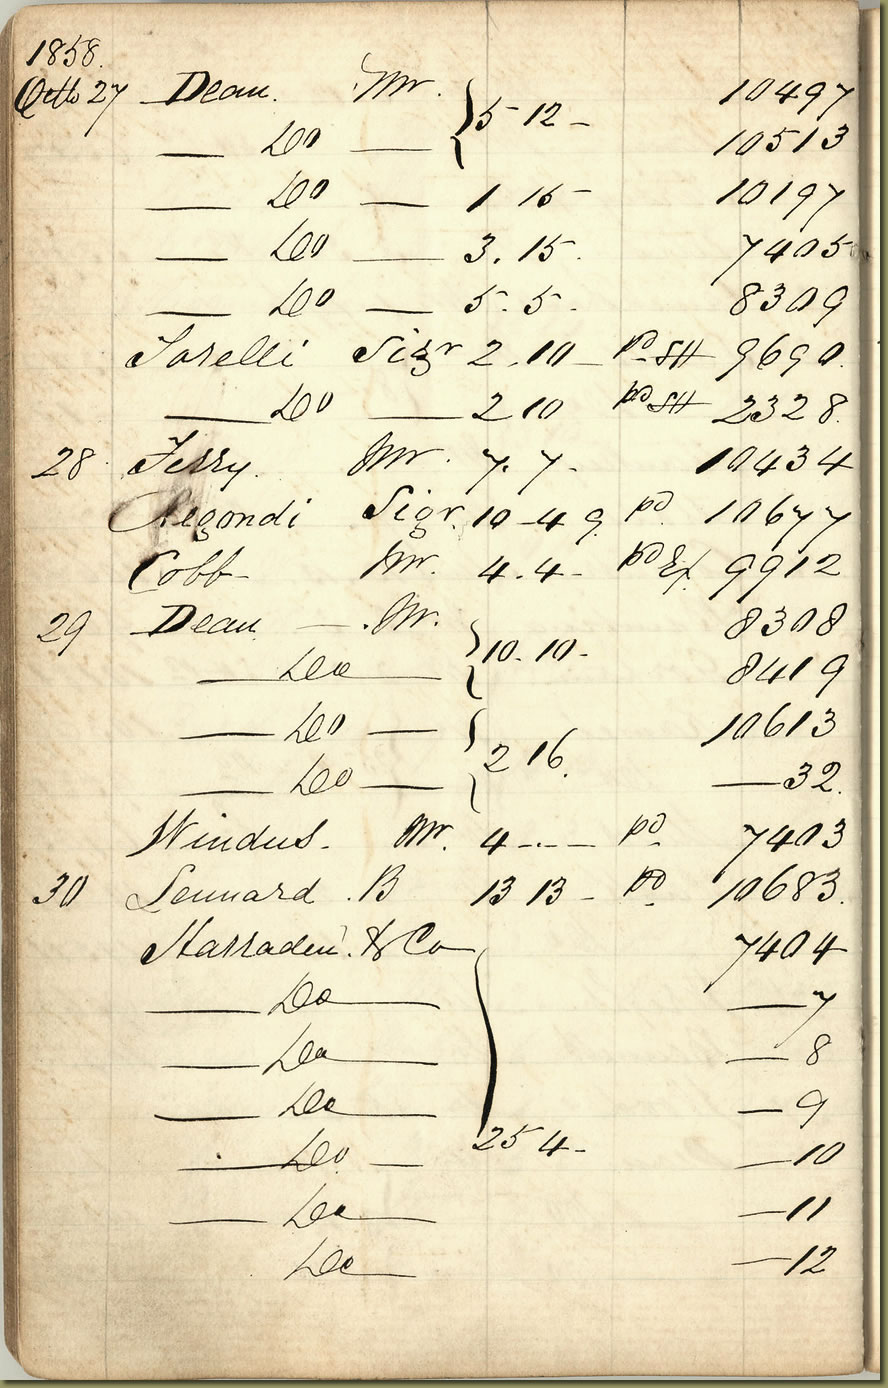 1858.
Octb 27 Dean. Mr. } 5 12 - 10497
— Do — 10513
— Do — 1 16 - 10197
— Do — 3. 15. 7405
— Do — 5. 5. 8309
Torelli Sigr 2. 10 - pd SH 9690.
— Do — 2 10 pd SH 2328.
28 Terry. Mr. 7. 7 - 10434
Regondi Sigr. 10 - 4 9. pd. 10677
Cobb - Mr. 4. 4 - pd Ex 9912
29 Dean — . Mr. } 10. 10. - 8308
— Do — 8419
— Do — } 2 16. 10613
— Do — — 32.
Windus. Mr. 4 - .. — pd 7403
30 Lennard . B 13 13 - pd. 10683.
Harraden. & Co — } 7404
— Do — — 7
— Do — — 8
— Do — — 9
— Do — 25 4 - — 10
— Do — — 11
Do — — 12